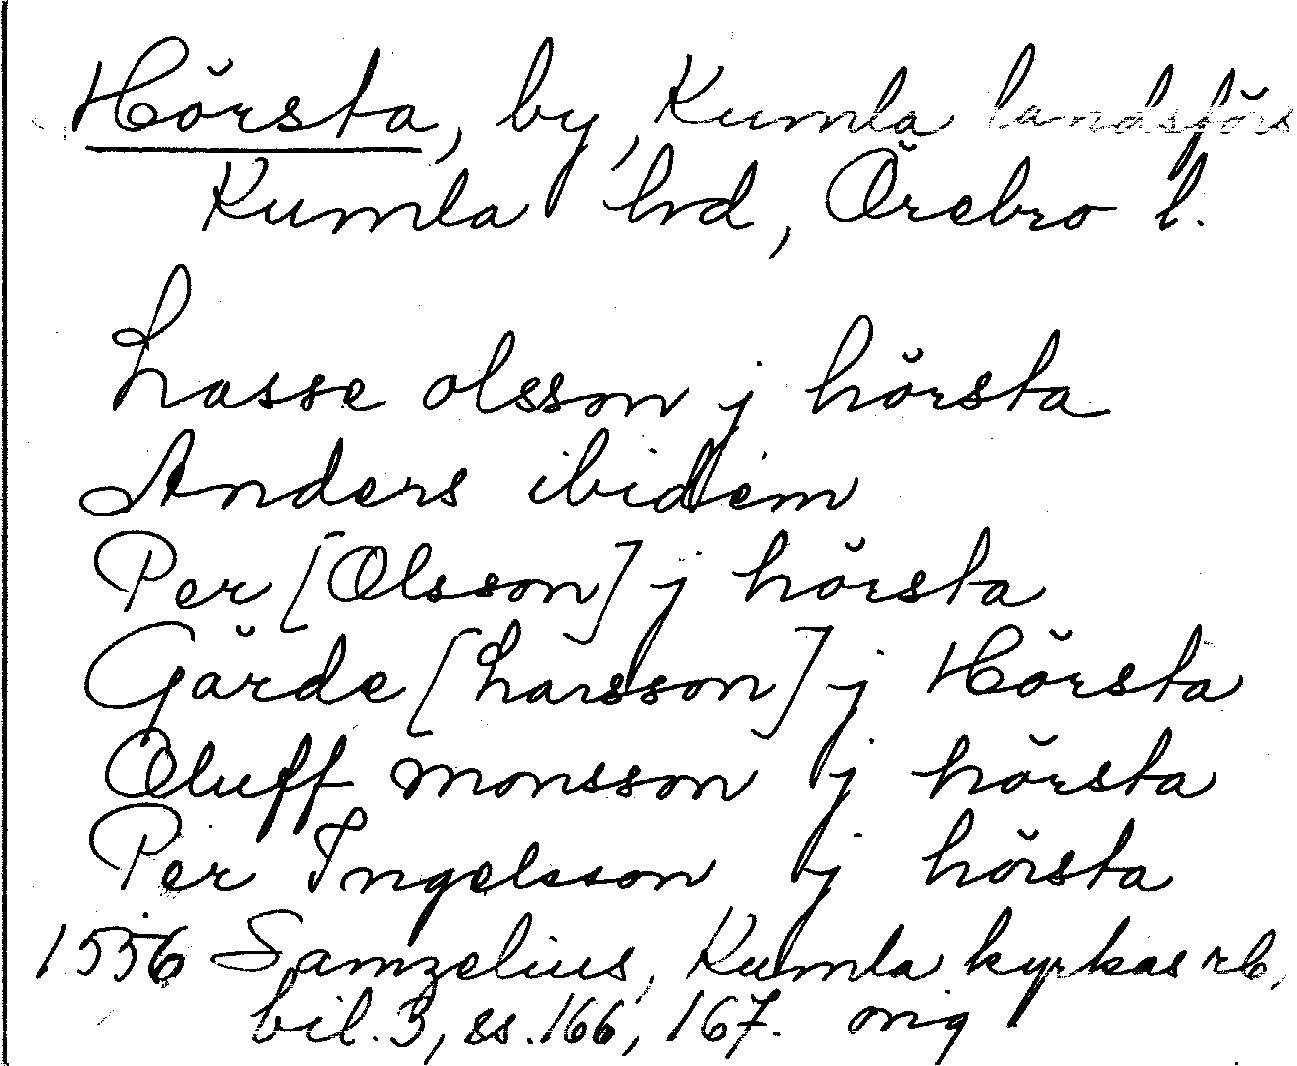 Hörsta, by, Kumla landsförs
Kumla hd, Örebro l.
Lasse olsson j hörsta
Anders ibidem
Per [Olsson] j hörsta
Gärde [Larsson] j Hörsta
Oluff monsson j hörsta
Per Ingelsson j hörsta
1556 Samzelius, Kumla kyrkas rb,
bil. 3, ss. 166, 167. orig